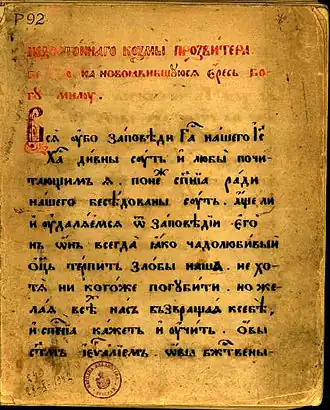 Р92
недостоинаго козмы прозвитера
на новоѧвившуюсѧ ересь бо
гу милоу.
Всѧ оубо заповѣди Га҃ нашего Іс҃
Ха҃ дивны соуть и любы почи
тающимъ ѧ. понеж сп҃сеніа ради
нашего бесѣдованы соуть. аще ли
и оудалѧемсѧ ѿ заповѣдіи его
нъ онъ всегда ꙗко чадолюбивый
оц҃ь терпитъ злобы нашѧ. не хо
тѧ ни когоже погубити. но же
лаѧ всѣ насъ възвращаѧ к себѣ,
и сп҃сена кажетъ и оучитъ. овы
ст҃мъ іеуа҃ліемъ. овы бжт҃вены